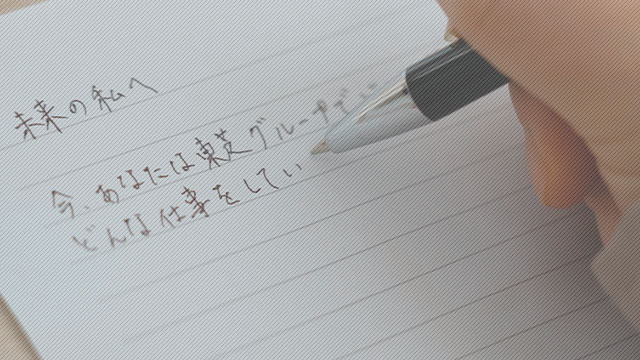 未来の私へ
今、あなたは東芝グループで
どんな仕事をしてい